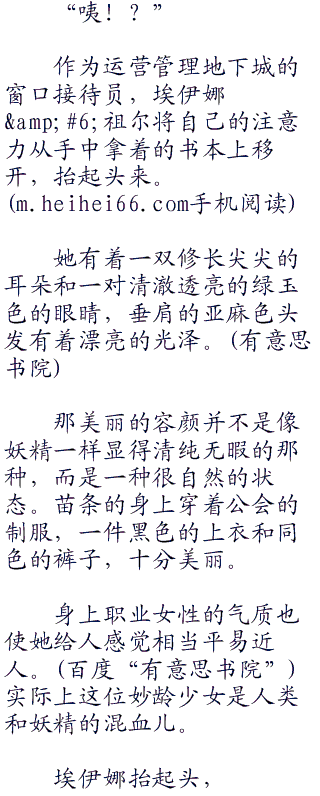 “咦！？”
作为运营管理地下城的
窗口接待员，埃伊娜
&amp;#6;祖尔将自己的注意
力从手中拿着的书本上移
开，抬起头来。
(m.heihei66.com手机阅读)
她有着一双修长尖尖的
耳朵和一对清澈透亮的绿玉
色的眼睛，垂肩的亚麻色头
发有着漂亮的光泽。(有意思
书院)
那美丽的容颜并不是像
妖精一样显得清纯无暇的那
种，而是一种很自然的状
态。苗条的身上穿着公会的
制服，一件黑色的上衣和同
色的裤子，十分美丽。
身上职业女性的气质也
使她给人感觉相当平易近
人。(百度“有意思书院”)
实际上这位妙龄少女是人类
和妖精的混血儿。
埃伊娜抬起头，